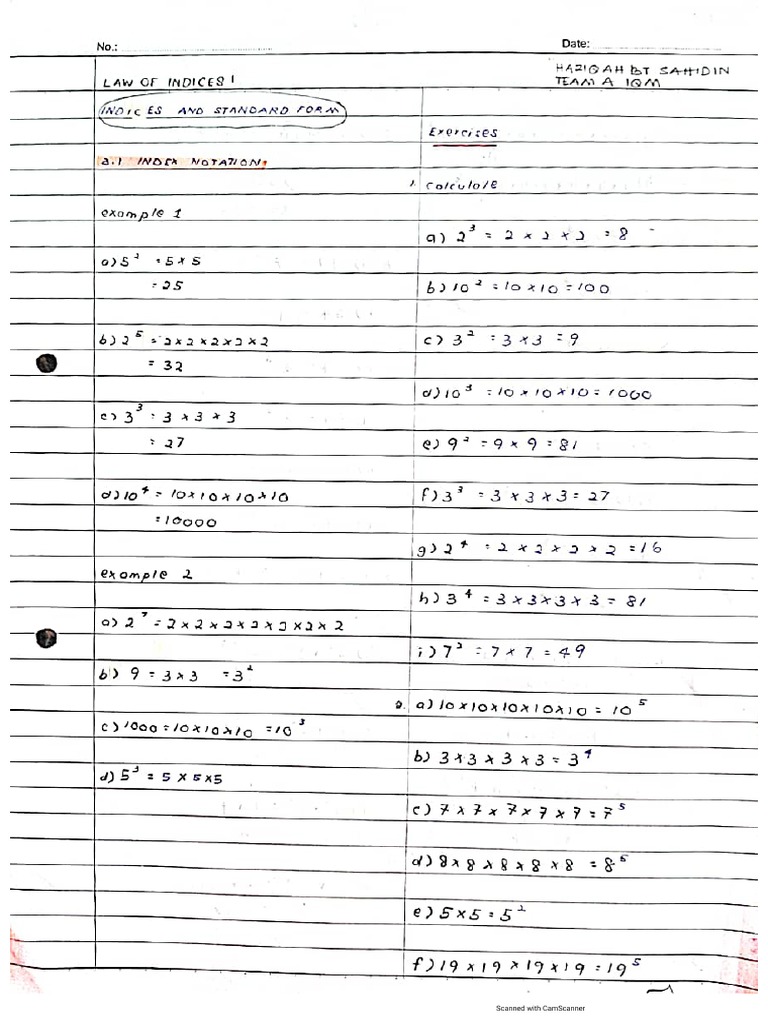 No.:
Date:
HAZIQAH BT SAHIDIN
TEAM A 1QM
LAW OF INDICES 1
INDICES AND STANDARD FORM
3.1 INDEX NOTATION:
example 1
a) 5² = 5 × 5
= 25
b) 2⁵ = 2 × 2 × 2 × 2 × 2
= 32
c) 3³ = 3 × 3 × 3
= 27
d) 10⁴ = 10 × 10 × 10 × 10
= 10000
example 2
a) 2⁷ = 2 × 2 × 2 × 2 × 2 × 2 × 2
b) 9 = 3 × 3 = 3²
c) 1000 = 10 × 10 × 10 = 10³
d) 5³ = 5 × 5 × 5
Exercises
1. Calculate
a) 2³ = 2 × 2 × 2 = 8
b) 10² = 10 × 10 = 100
c) 3² = 3 × 3 = 9
d) 10³ = 10 × 10 × 10 = 1000
e) 9² = 9 × 9 = 81
f) 3³ = 3 × 3 × 3 = 27
g) 2⁴ = 2 × 2 × 2 × 2 = 16
h) 3⁴ = 3 × 3 × 3 × 3 = 81
i) 7² = 7 × 7 = 49
2. a) 10 × 10 × 10 × 10 × 10 = 10⁵
b) 3 × 3 × 3 × 3 = 3⁴
c) 7 × 7 × 7 × 7 × 7 = 7⁵
d) 8 × 8 × 8 × 8 × 8 = 8⁵
e) 5 × 5 = 5²
f) 19 × 19 × 19 × 19 = 19⁵
Scanned with CamScanner